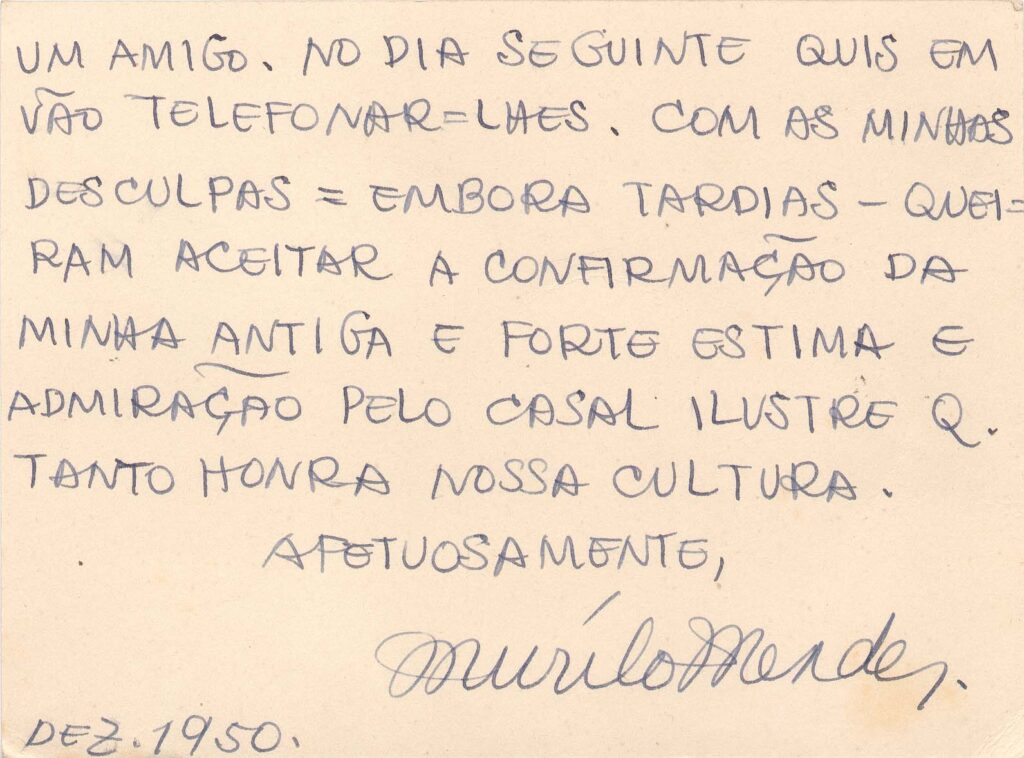 UM AMIGO. NO DIA SEGUINTE QUIS EM
VÃO TELEFONAR=LHES. COM AS MINHAS
DESCULPAS = EMBORA TARDIAS – QUEI=
RAM ACEITAR A CONFIRMAÇÃO DA
MINHA ANTIGA E FORTE ESTIMA E
ADMIRAÇÃO PELO CASAL ILUSTRE Q.
TANTO HONRA NOSSA CULTURA.
AFETUOSAMENTE,
Murilo Mendes.
DEZ. 1950.